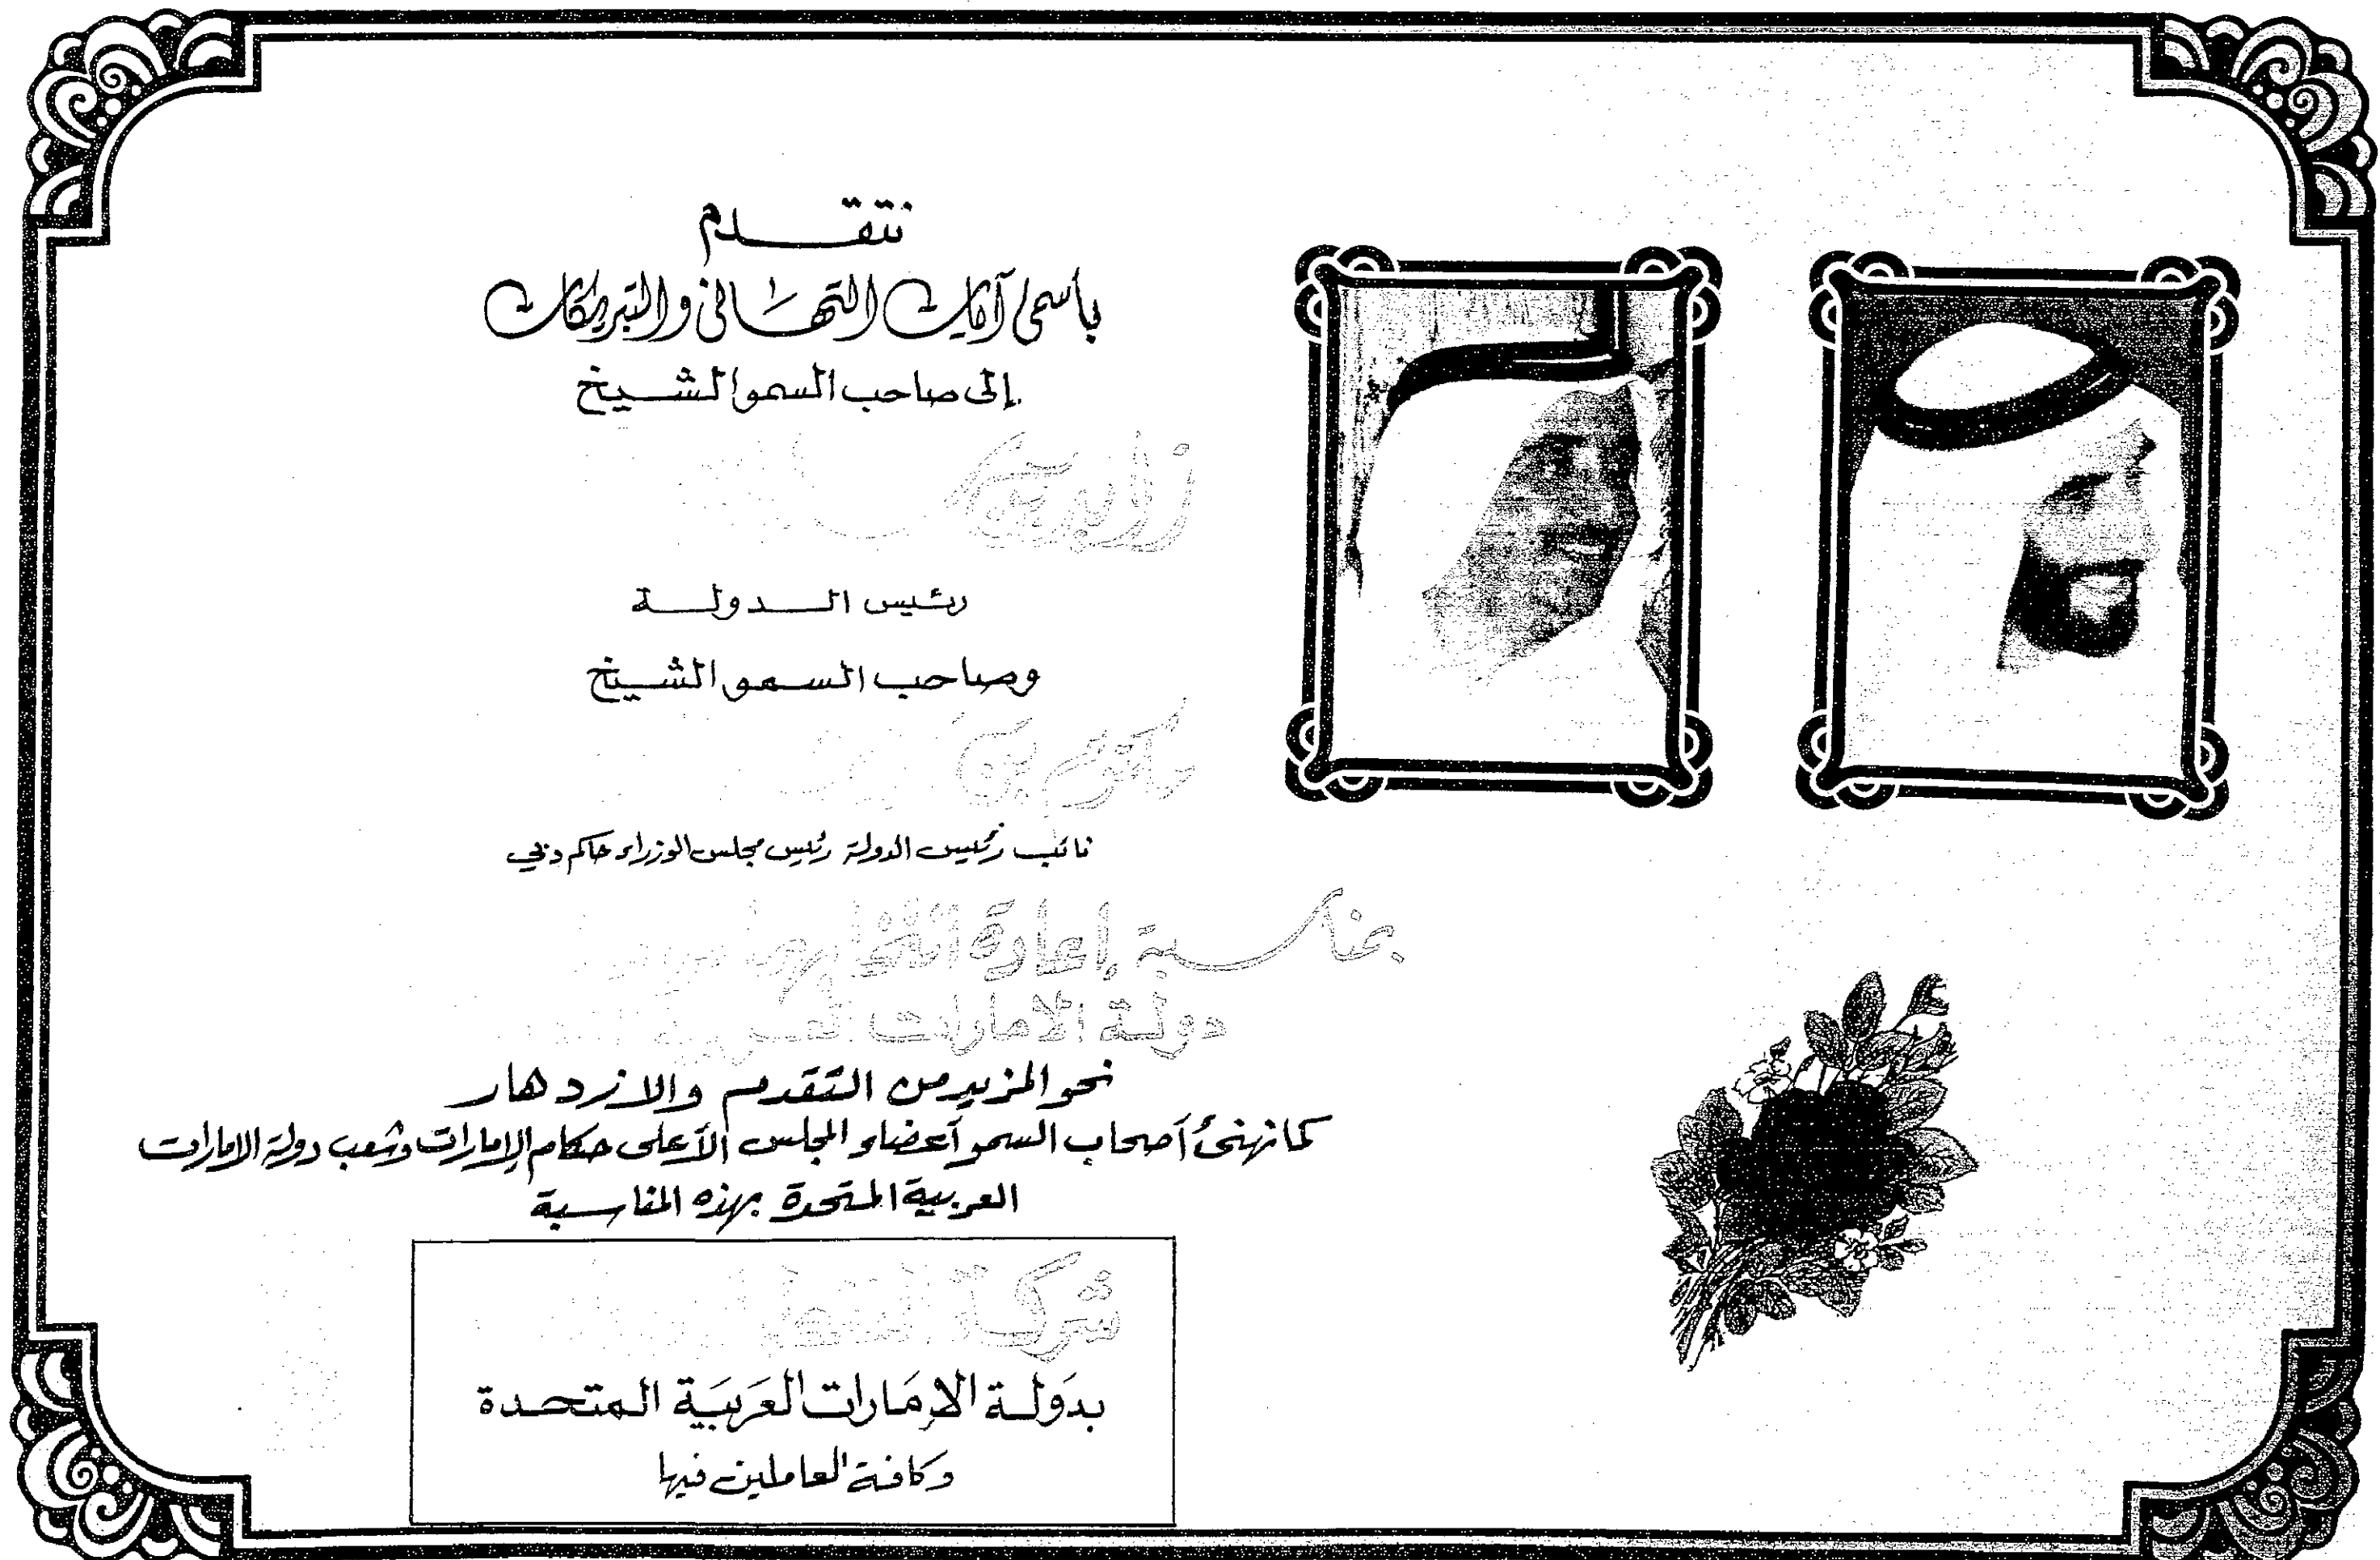 نتقدم
بأسمى آيات التهاني والتبريكات
إلى صاحب السمو الشيخ
زايد بن
رئيس الدولة
وصاحب السمو الشيخ
مكتوم بن
نائب رئيس الدولة رئيس مجلس الوزراء حاكم دبي
بمناسبة إعادة انتخابهما
دولة الامارات العربية
نحو المزيد من التقدم والازدهار
كما نهنئ أصحاب السمو أعضاء المجلس الأعلى حكام الإمارات وشعب دولة الامارات
العربية المتحدة بهذه المناسبة
شركة
بدَولة الإمَارات العَربيَة المتحدة
وكافة العاملين فيها